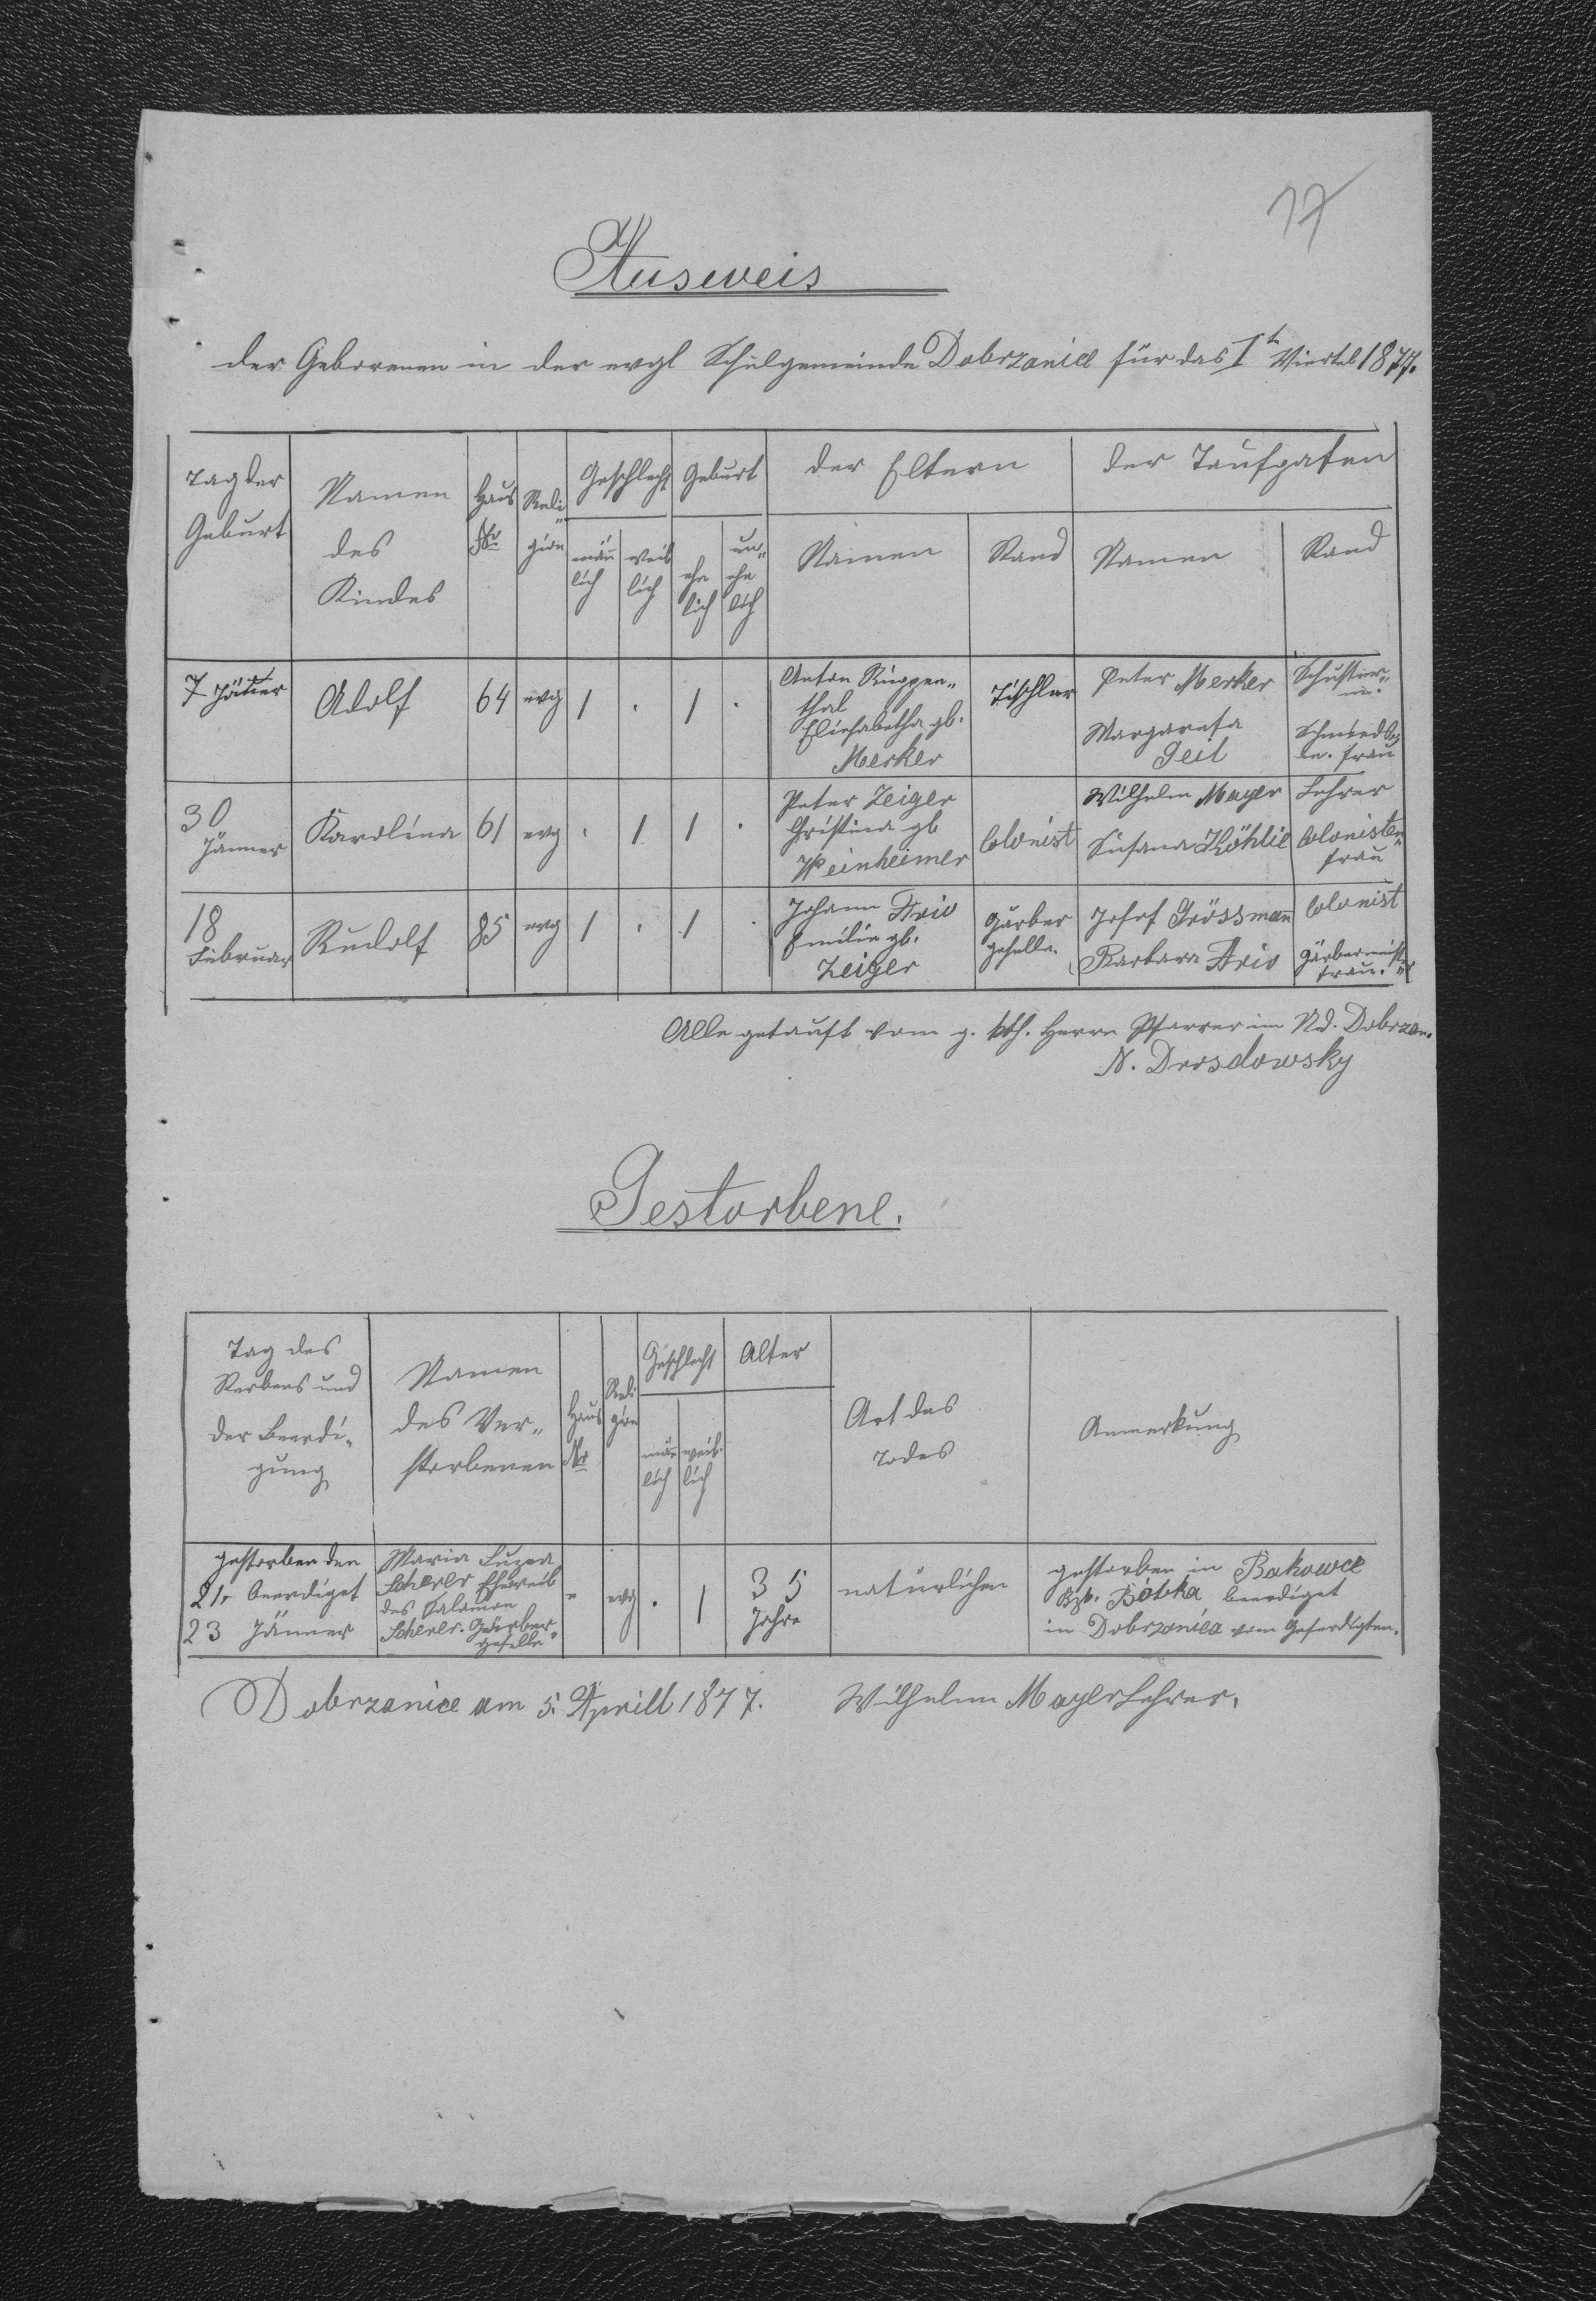 17
Ausweis
der Geborenen in der evgl Schulgemeinde Dobrzanice für das I Viertel 1877.
Tag der Geburt
Namen des Kindes
Haus Nr
Religion
Geschlecht
männlich
weiblich
Geburt
ehelich
un"ehelich
der Eltern
Namen
Stand
der Taufpaten
Namen
Stand
7 Jäner
Adolf
64
evg
1
.
1
.
Anton Ringen"
thal
Eliesabetha gb.
Merker
Tischler
Peter Merker
Margaretha
Geil
Schuster"
Schmieds
frau
30
Jänner
Karolina
61
evg
.
1
1
.
Peter Zeiger
Christina gb
Weinheimer
Colonist
Wilhelm Mayer
Susana Köhlie
Lehrer
Colonisten"
frau
18
Februar
Rudolf
85
evg
1
.
1
.
Johann Ario
Emilie gb.
Zeiger
Gärber
geselle.
Josef Grössman
Barbara Ario
Colonist
Gärbermeist"
frau.
Alle getauft vom Herrn Pfarrer im Nd. Dobrzan.
N. Drosdowsky
Gestorbene.
Tag des
Sterbens und
der Beerdi"
gung
Namen
des Ver"
storbenen
Haus
Nr
Reli
gion
Geschlecht
män
lich
weib
lich
Alter
Art des
Todes
Anmerkung
gestorben den
21. beerdiget
23 Jänner
Maria
Scherer Eheweib
des Salamon
Scherer. Gärber"
geselle
"
evg
.
1
35
Jahre
natürlichen
gestorben in Bakowce
Bzk. Bóbrka, beerdiget
in Dobrzanica vom Gefertigten.
Dobrzanice am 5. Aprill 1877.
Wilhelm Mayer Lehrer.